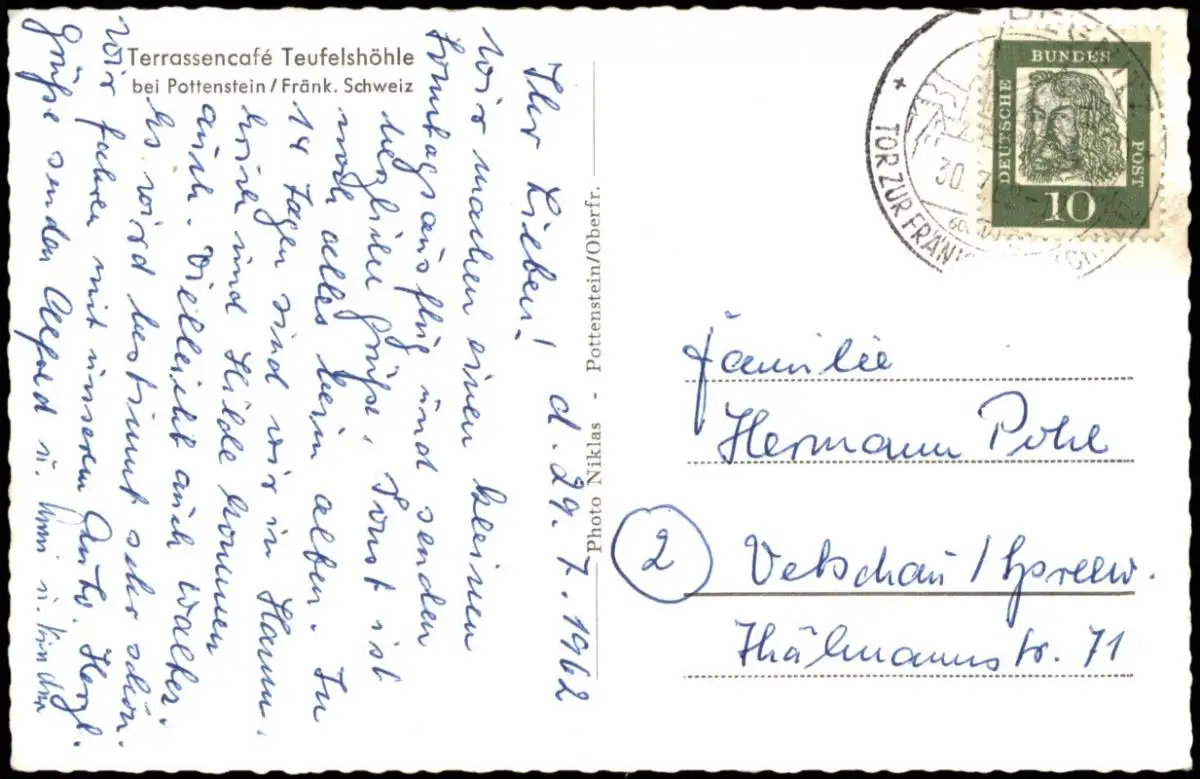 Terrassencafé Teufelshöhle
bei Pottenstein/Fränk. Schweiz
d. 29. 7. 1962
Ihr Lieben!
Wir machen einen kleinen
Sonntagsausflug und senden
herzliche Grüße. Sonst ist
noch alles beim alten. In
14 Tagen sind wir in Hamm.
Erich und Hilde kommen
auch. Vielleicht auch Walter.
Es wird bestimmt sehr schön.
Wir fahren mit unserem Auto. Herzl.
Grüße senden Alfred u. u. Kinder
Photo Niklas - Pottenstein/Oberfr.
DEUTSCHE BUNDES POST
10
TOR ZUR FRÄNK
30. 7.
Familie
Hermann Pohl
2
Vetschau/Spreew.
Thälmannstr. 71